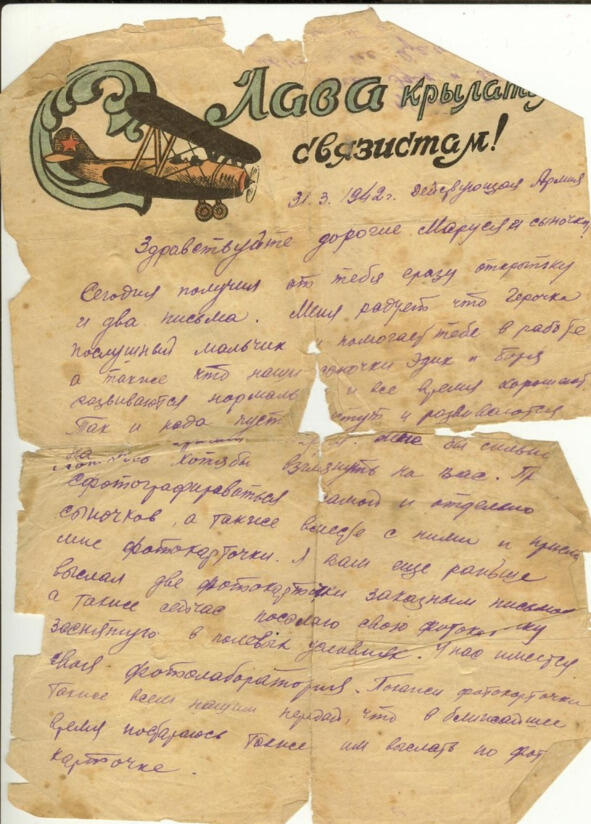 Лава крылаты
связистам!
31.3.1942г. Действующая Армия
Здравствуйте дорогие Маруся и сыночки!
Сегодня получил от тебя сразу открытку
и два письма. Меня радует что Герочка
послушный мальчик и помогает тебе в работе
а также что наши сыночки Эдик и Боря
развиваются нормаль и все время хорошеют.
Так и надо пуст стут и развиваются
бы сильно
хотябы взглянуть на вас.
Сфотографироваться самой и отдельно
сыночков, а также вместе с ними и присл
мне фотокарточки. Я вам еще раньше
выслал две фотокарточки заказным письмом
а также сейчас посылаю свою фоток ку
заснятую в полевых условиях. У нас имеется
своя фотолаборатория. Покажи фотокарточки
также всем нашим передай, что в ближайшее
время постараюсь также им выслать по фот
карточке.